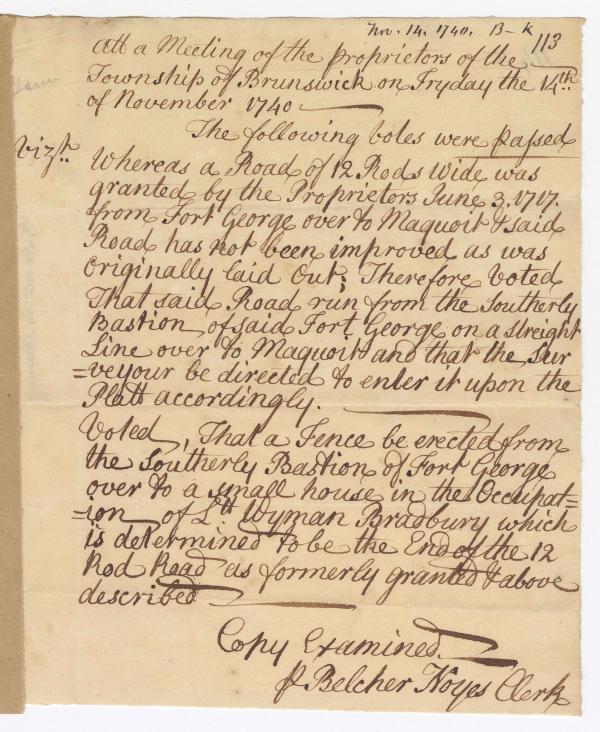 Nov. 14. 1740. B-K
113
Att a Meeting of the proprietors of the
Township of Brunswick on Fryday the 14th
of November 1740
The following votes were passed
Vizt. Whereas a Road of 12 Rods Wide was
granted by the Proprietors June 3. 1717.
from Fort George over to Maquoit & said
Road has not been improved as was
Originally laid Out; Therefore Voted
That said Road run from the Southerly
Bastion of said Fort George on a streight
Line over to Maquoit and that the Sur
=veyour be directed to enter it upon the
Platt accordingly.
Voted, That a Fence be erected from
the Southerly Bastion of Fort George
over to a small house in the Occupat=
=ion of Lt Wyman Bradbury which
is determined to be the End of the 12
Rod Road as formerly granted & above
described
Copy Examined
p Belcher Noyes Clerk